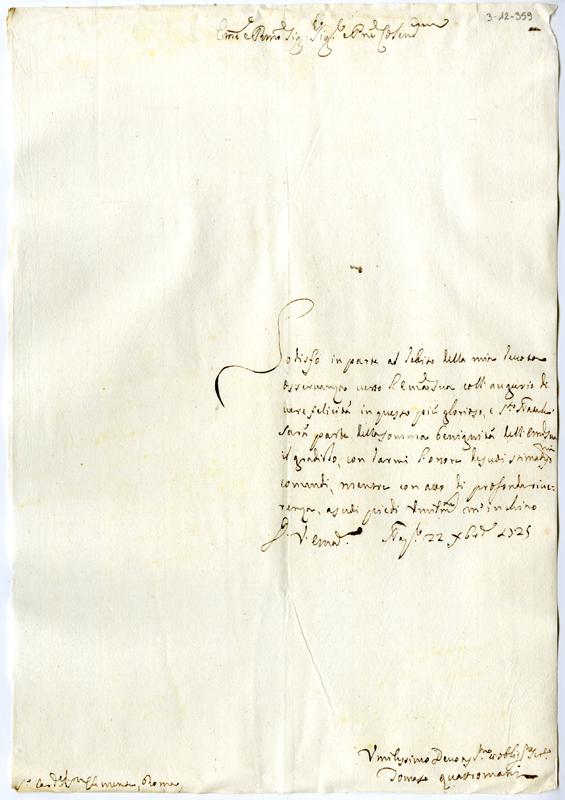 3-12-959
Em.º e Rmo Sig.r Sig.r e Pne
Sodisfo in parte al debito della mia devota
osservanza verso l'Em.za Sua coll'augurio di
vere felicità in questo più glorioso, e S.to Natale
sarà parte della somma benignità dell'
il gradirlo, con darmi l'onore de suoi stimatis.mi
comandi, mentre con atto di profonda rive-
renza, a suoi piedi Umilm.te m'inchino
D. V. Em.a Nap.li 22 Xbre 1725
Umilissimo Devotis.mo et oblig.mo
Donato quattromani
S.r Card.l Clemente, Roma